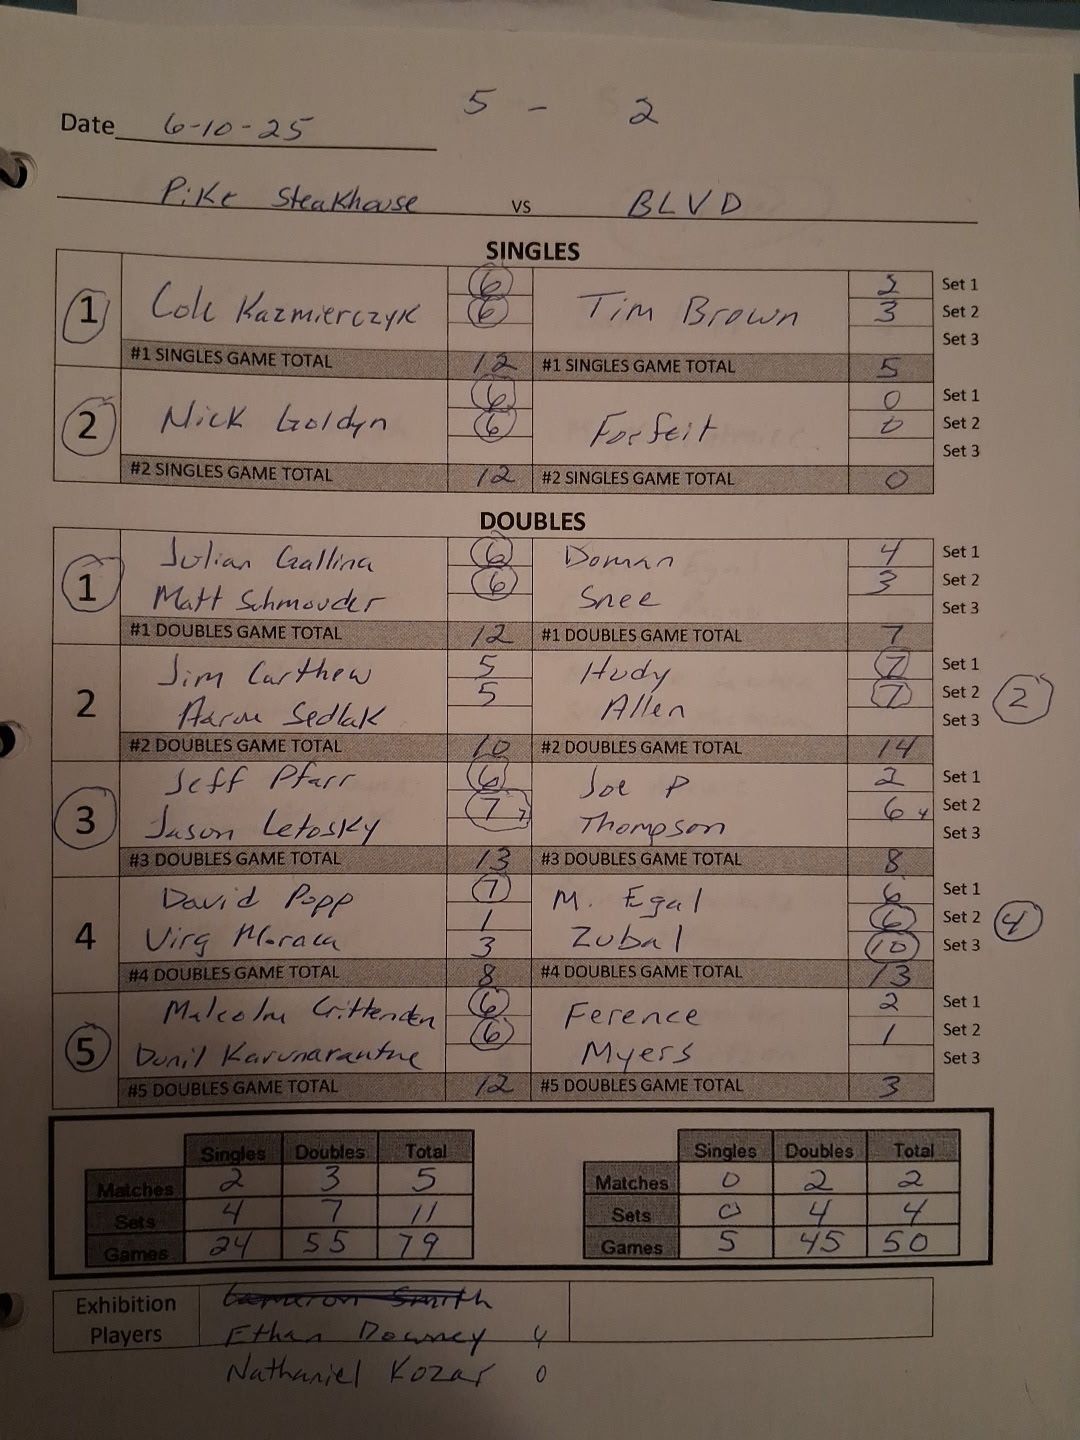 5 - 2
Date 6-10-25
Pike Steakhouse vs BLVD
SINGLES
1 Cole Kazmierczyk 6 Tim Brown 2 Set 1
6 3 Set 2
Set 3
#1 SINGLES GAME TOTAL 12 #1 SINGLES GAME TOTAL 5
2 Nick Goldyn 6 Forfeit 0 Set 1
6 0 Set 2
Set 3
#2 SINGLES GAME TOTAL 12 #2 SINGLES GAME TOTAL 0
DOUBLES
1 Julian Gallina 6 Doman 4 Set 1
Matt Schmouder 6 Snee 3 Set 2
Set 3
#1 DOUBLES GAME TOTAL 12 #1 DOUBLES GAME TOTAL 7
2 Jim Carthew 5 Hudy 7 Set 1
Aaron Sedlak 5 Allen 7 Set 2 2
Set 3
#2 DOUBLES GAME TOTAL 10 #2 DOUBLES GAME TOTAL 14
3 Jeff Pfarr 6 Joe P 2 Set 1
Jason Letosky 7 7 Thompson 6 4 Set 2
Set 3
#3 DOUBLES GAME TOTAL 13 #3 DOUBLES GAME TOTAL 8
4 David Popp 7 M. Egal 6 Set 1
1 6 Set 2 4
Virg Moraca 3 Zubal 10 Set 3
#4 DOUBLES GAME TOTAL 8 #4 DOUBLES GAME TOTAL 13
5 Malcolm Crittenden 6 Ference 2 Set 1
Dunil Karunarantne 6 Myers 1 Set 2
Set 3
#5 DOUBLES GAME TOTAL 12 #5 DOUBLES GAME TOTAL 3
Singles Doubles Total Singles Doubles Total
Matches 2 3 5 Matches 0 2 2
Sets 4 7 11 Sets 0 4 4
Games 24 55 79 Games 5 45 50
Exhibition Players
Cameron Smith
Ethan Downey 4
Nathaniel Kozar 0